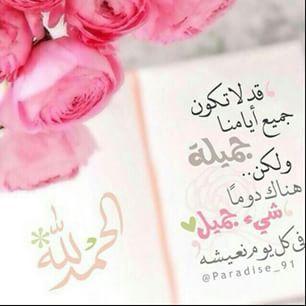 قد لا تكون
جميع أيامنا
جميلة
ولكن..
هناك دوماً
شيء جميل
في كل يوم نعيشه
@Paradise_91
الحمد لله